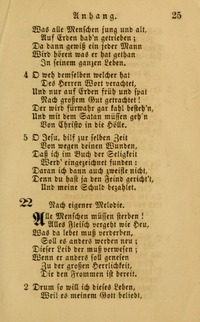 Anhang. 25
Was alle Menschen jung und alt,
Auf Erden hab'n getrieben;
Da dann gewiß ein jeder Mann
Wird hören was er hat gethan
In seinem ganzen Leben.
4 O weh demselben welcher hat
Des Herren Wort verachtet,
Und nur auf Erden früh und spat
Nach großem Gut getrachtet!
Der wird fürwahr gar kahl besteh'n,
Und mit dem Satan müssen geh'n
Von Christo in die Hölle.
5 O Jesu, hilf zur selben Zeit
Von wegen deinen Wunden,
Daß ich im Buch der Seligkeit
Werd' eingezeichnet funden:
Daran ich dann auch zweifle nicht,
Denn du hast ja den Feind gericht't,
Und meine Schuld bezahlet.
22 Nach eigener Melodie.
Alle Menschen müssen sterben!
Alles Fleisch vergeht wie Heu,
Was da lebet muß verderben,
Soll es anders werden neu;
Dieser Leib der muß verwesen;
Wenn er anders soll genesen
Zu der großen Herrlichkeit,
Die den Frommen ist bereit.
2 Drum so will ich dieses Leben,
Weil es meinem Gott beliebt,